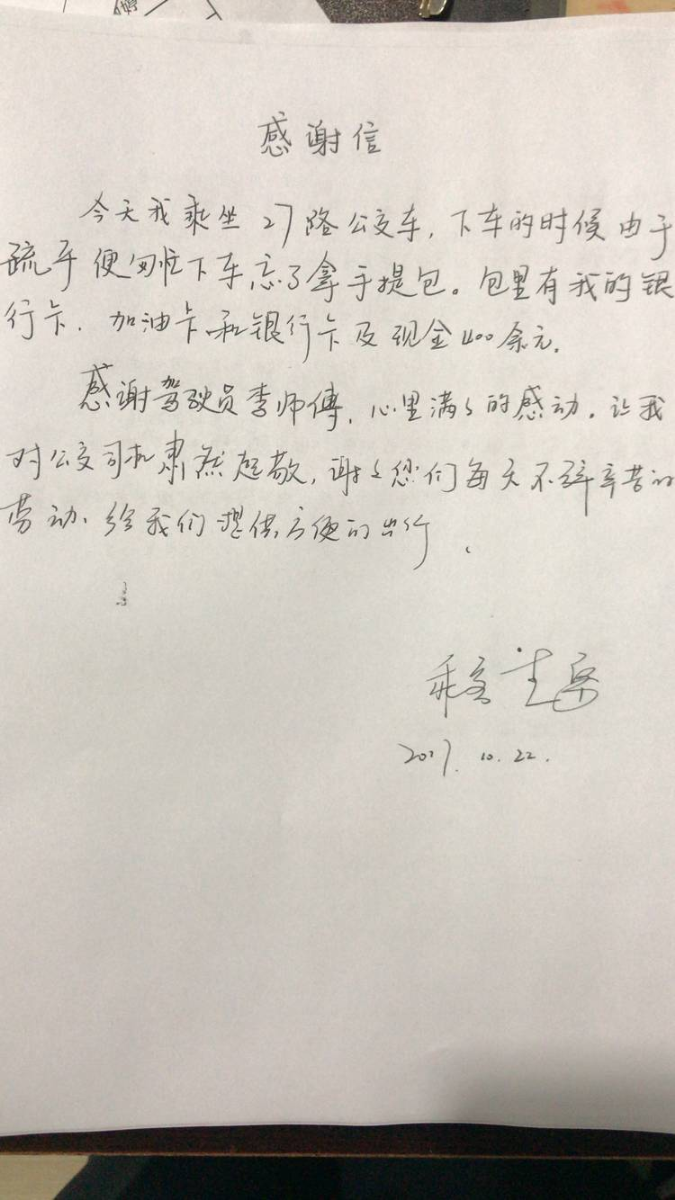 感谢信
今天我乘坐27路公交车,下车的时候由于
疏乎便匆忙下车,忘了拿手提包。包里有我的银
行卡.加油卡和银行卡及现金400余元.
感谢驾驶员李师傅,心里满々的感动.让我
对公交司机肃然起敬,谢々您们每天不辞辛苦的
劳动.给我们提供方便的出行.
2017.10.22.